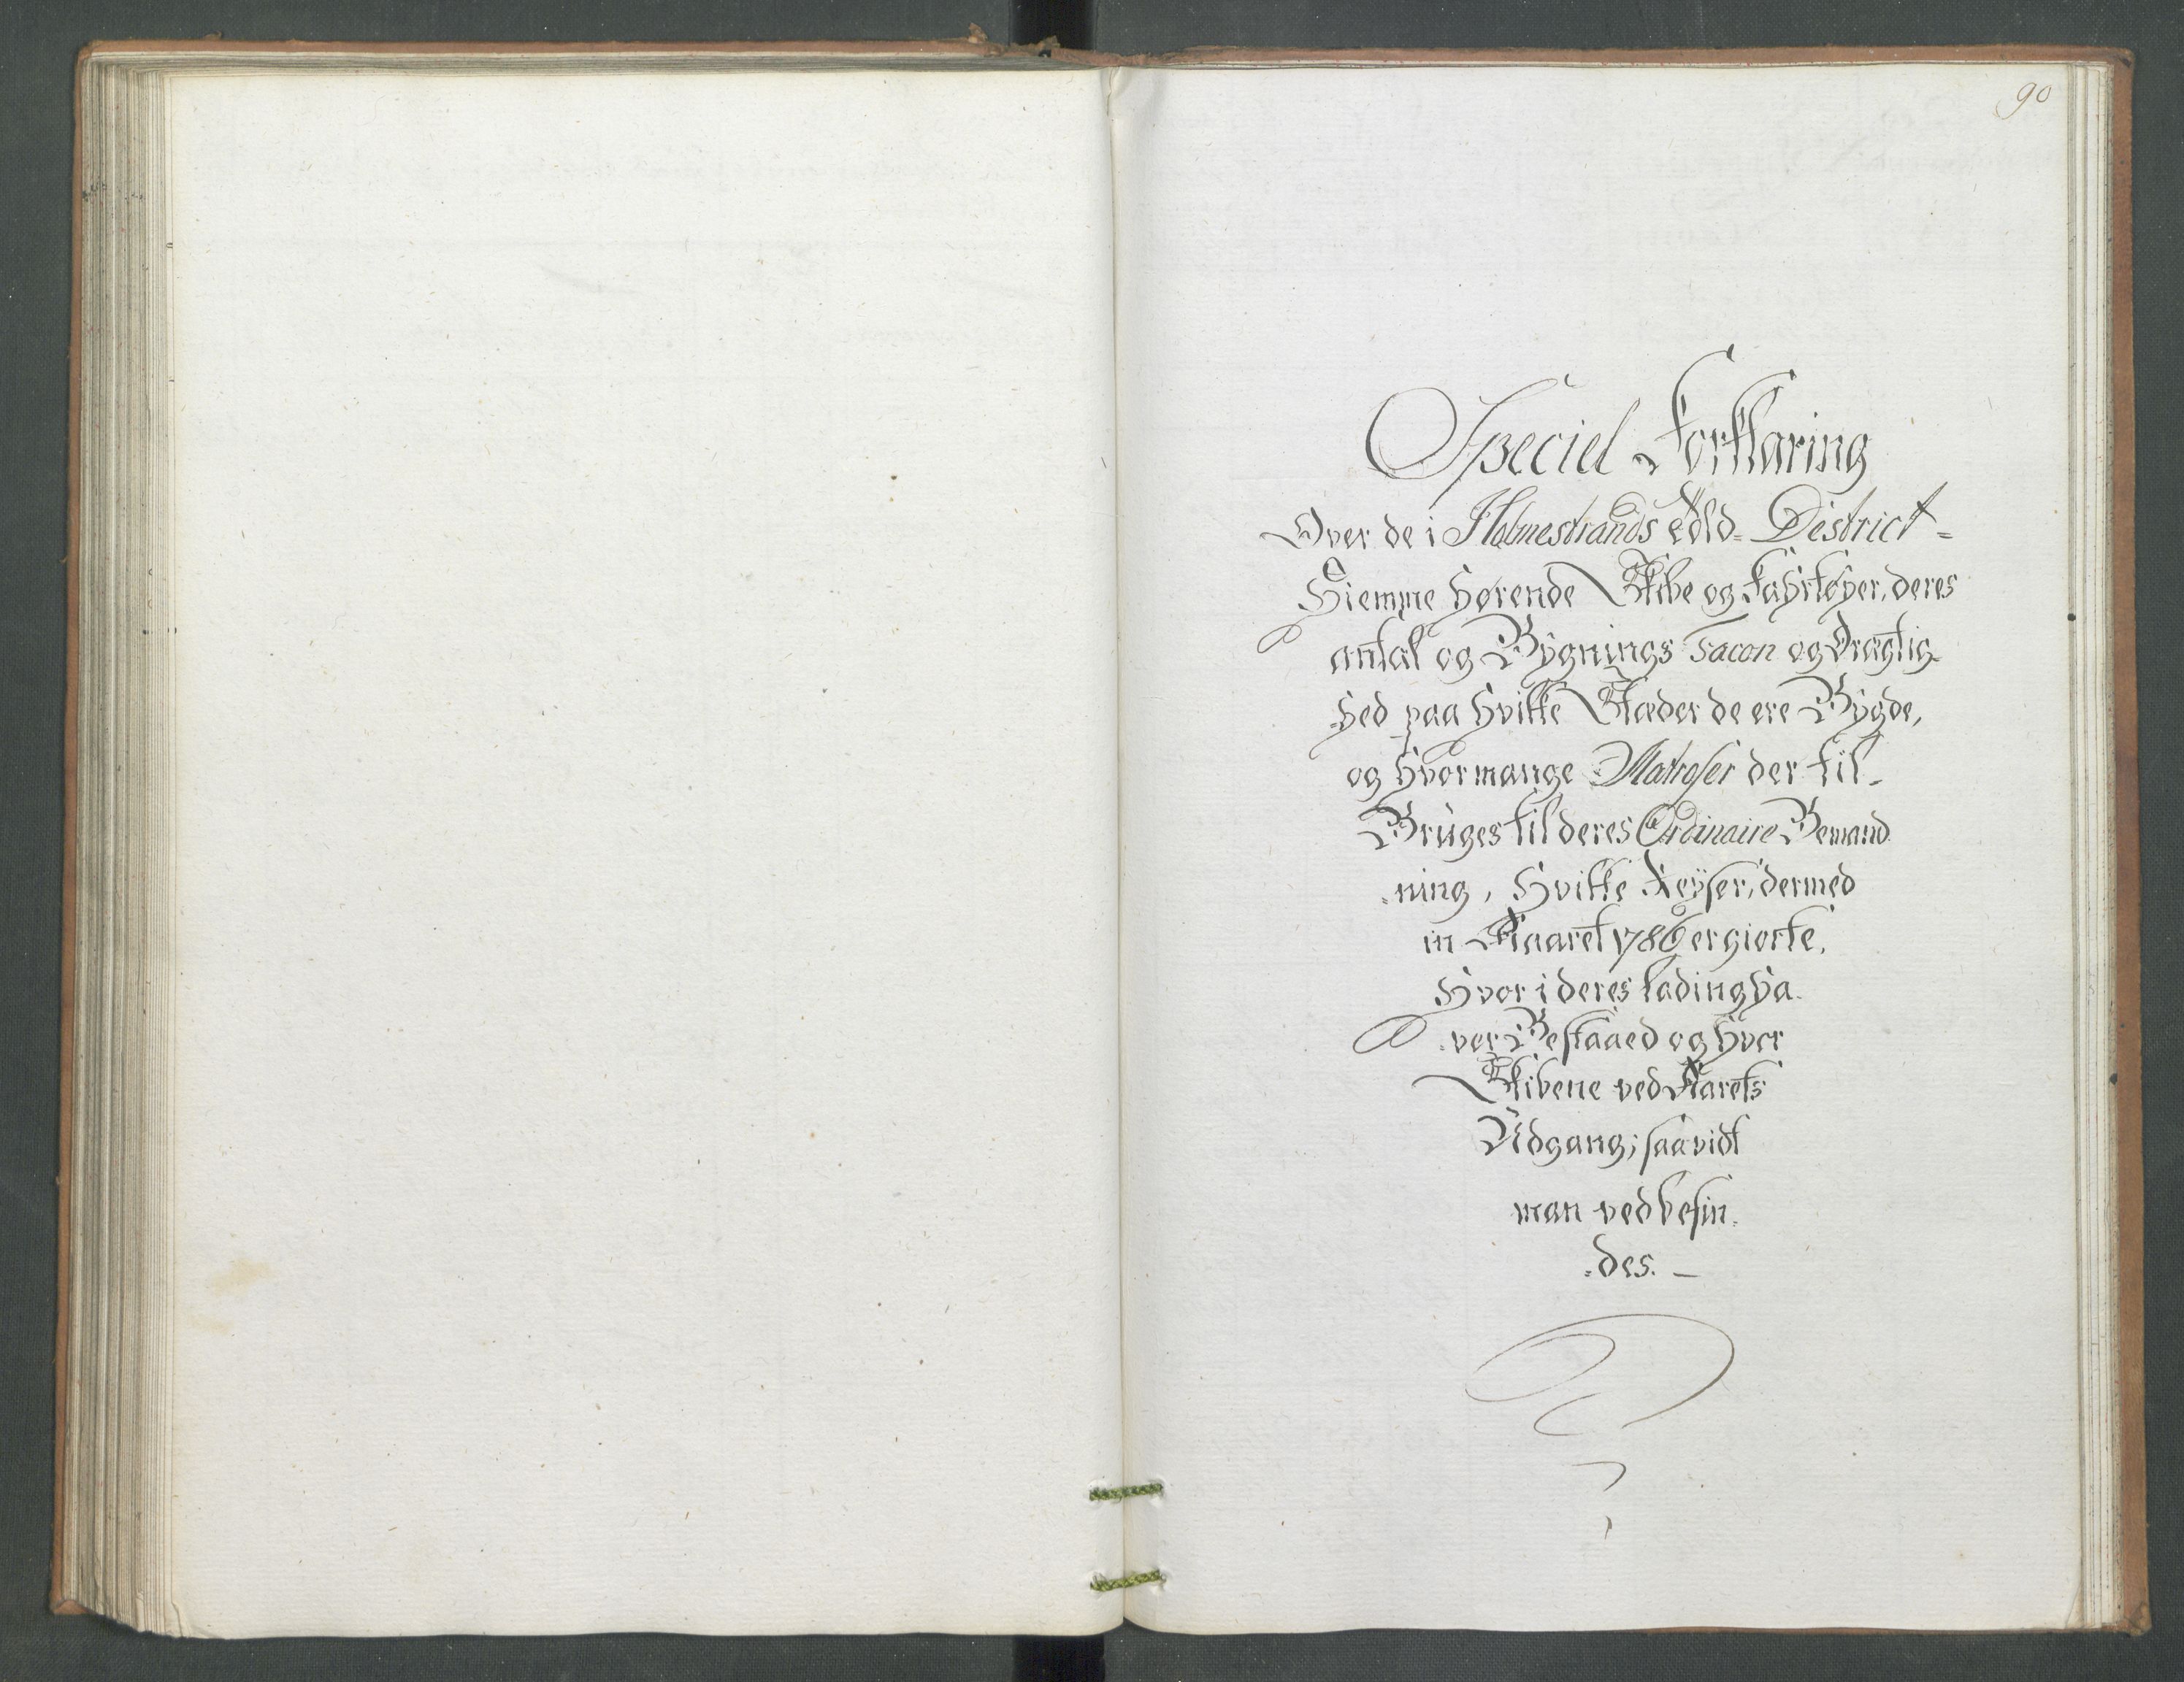 90
Speciel Forklaring
Over de i Holmestrands Told= District=
Hiemme hørende Skibe og Fahrtøyer, deres
antal og Bygnings Facon og Drægtig-
=hed paa hvilke Stæder de ere Bygde,
og hvor mange Matroser der til-
Bruges til deres Ordinaire Bemand=
=ning, Hvilke Reyser, dermed
in Aaret 1786 er giorte,
Hvor i deres ladning ha=
=ver Bestaaed og hvor
Skibene ved Aarets
Udgang; saavidt
man ved befin=
=des. —